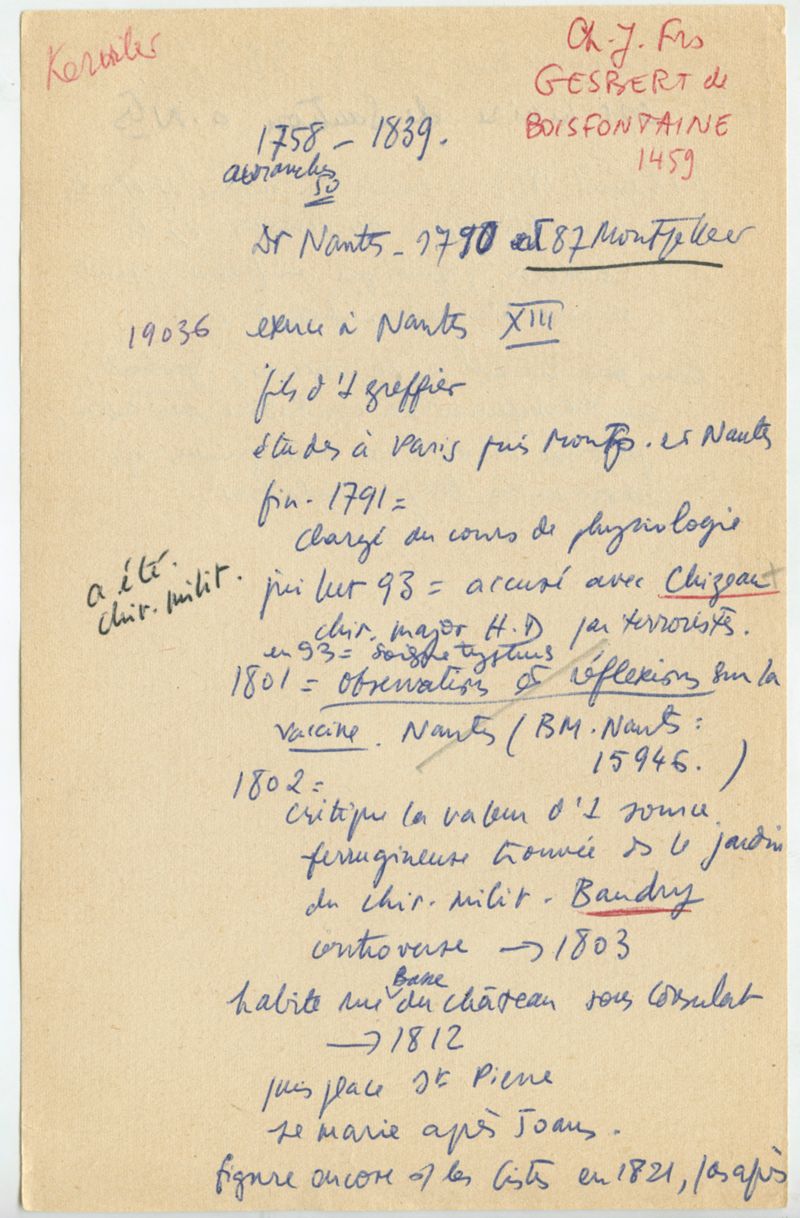 Kerviler
Ch. J. Frs
GESBERT de
BOISFONTAINE
1459
1758 - 1839.
avranches
50
Dr Nantes - 1790 et 87 Montpellier
19036 exerce à Nantes XIII
fils d'1 greffier
études à Paris puis Montp. et Nantes
fin. 1791 =
chargé du cours de physiologie
a été.
chir. milit.
juillet 93 = accusé avec Chizeau +
chir. major H.D par terroristes.
en 93 = soigne typhus
1801 = Observations et réflexions sur la
vaccine. Nantes (BM. Nantes :
15946. )
1802 =
critique la valeur d'1 source
ferrugineuse trouvée ds le jardin
du chir. milit. Baudry
controverse → 1803
Basse
habite rue du château sous Consulat
→ 1812
puis place St Pierre
se marie après 50 ans.
figure encore les listes en 1821, pas après